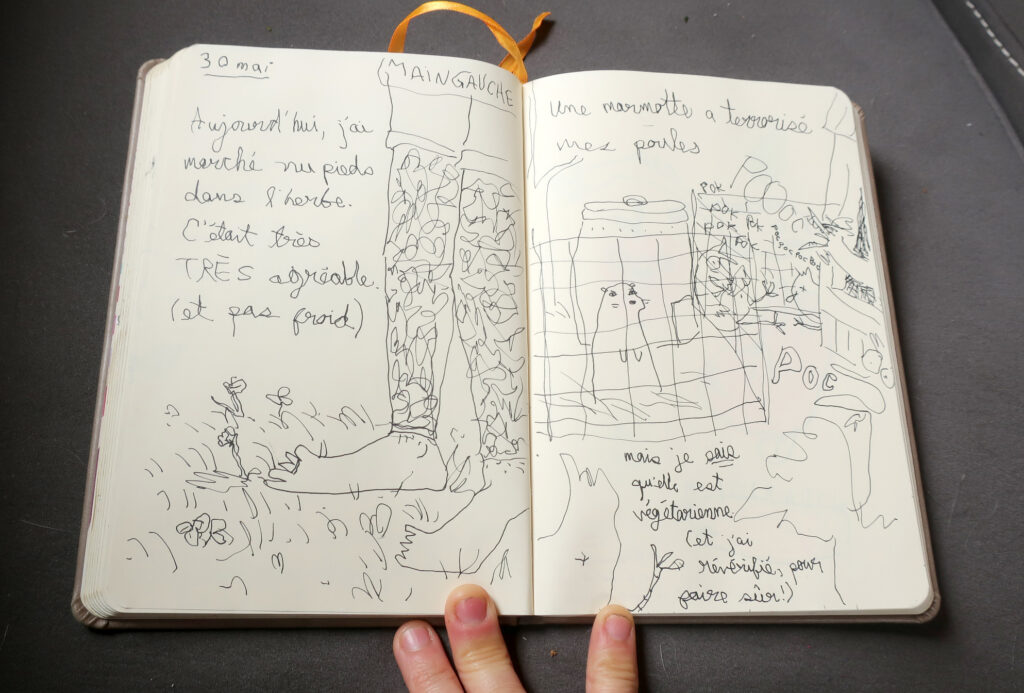 30 mai
MAIN GAUCHE
Aujourd'hui, j'ai
marché nu pieds
dans l'herbe.
C'était très
TRÈS agréable.
(et pas froid)
une marmotte a terrorisé
mes poules
POK
POK
POK POK
POK
POC POC POC POC
POC
mais je sais
qu'elle est
végétarienne.
(et j'ai
révérifié, pour
faire sûr!)